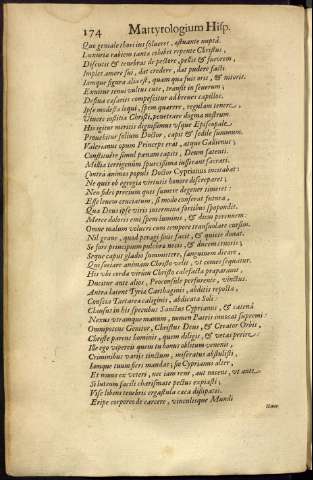 174 Martyrologium Hisp.
Que geniale thori ius solueret, æstuante nuptâ.
Luxuriæ rabiem tanta cohibet repente Christus,
Discutit & tenebras de pectore, pellit & furorem,
Implet amore sui, dat credere, dat pudere facti.
Iamque figura alia est, quam quæ fuit oris, & nitoris.
Exuitur tenui vultus cute, transit in seuerum;
Deflua cæsaries compescitur ad breues capillos.
Ipse modesta loqui, spem quærere, regulam tenere,
Viuere iustitia Christi, penetrare dogma nostrum.
His igitur meritis dignissimus vsque Episcopale
Prouehitur solium Doctor, capit & sedile summum.
Valerianus opum Princeps erat, atque Gallienus;
Constituére simul pœnam capitis, Deum fatenti.
Millia terrigenûm spurcissima iusserant sacrari.
Contra animas populi Doctor Cyprianus incitabat:
Ne quis ab egregia virtutis honore discreparet;
Neu fidei precium quis sumere degener timeret:
Esse leuem cruciatum, si modo conferas futura,
Quæ Deus ipse viris intermina fortibus spopondit.
Merce doloris emi spem luminis, & diem perennem:
Omne malum volucri cum tempore transuolare cursim.
Nil graue, quod peragi finis facit, & quiete donat.
Se fore principium pulchra necis, & ducem cruoris;
Seque caput gladio summittere, sanguinem dicare,
Qui sociare animam Christo velit, vt comes sequatur.
His vbi corda virûm Christo calefacta præparauit,
Ducitur ante alios, Proconsule perfurente, vinctus.
Antra latent Tyriæ Carthaginis, abditis reposta,
Conscia Tartareæ caliginis, abdicata Soli:
Clausus in his specubus Sanctus Cyprianus, & catenâ
Nexus vtramque manum, nomen Patris inuocat supremi:
Omnipotens Genitor, Christus Deus, & Creator Orbis,
Christe parens hominis, quem diligis, & vetas perire.
Ille ego vipereis quem tu bonus oblitum venenis,
Criminibus varijs tinctum, miseratus abstulisti,
Iamque tuum fieri mandas; fio Cyprianus alter,
Et nouus ex veteri, nec iam reus, aut nocens, vt ante.
Si luteum facili charismate pectus expiasti;
Vise libens tenebris ergastula cæca dissipatis.
Eripe corporeo de carcere, vinculisque Mundi